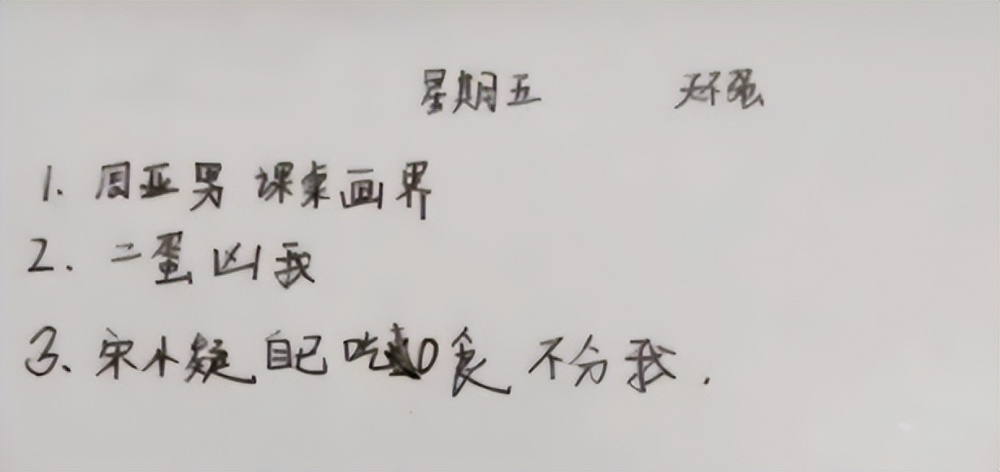 星期五 天不强
1. 周亚男 课桌画界
2. 二蛋凶我
3、宋小疑 自己吃0食 不分我.